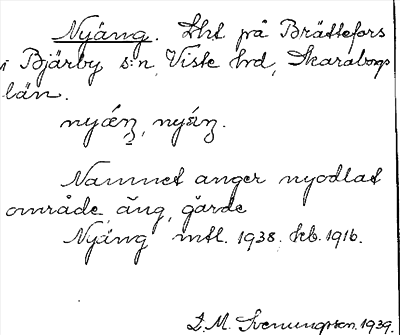 Nyäng. Lht på Brättefors
i Bjärby s:n, Viste hd, Skaraborgs
län.
Namnet anger nyodlat
område, äng, gärde
Nyäng mtl. 1938. kb. 1916.
L. M. Svenungsson. 1939.